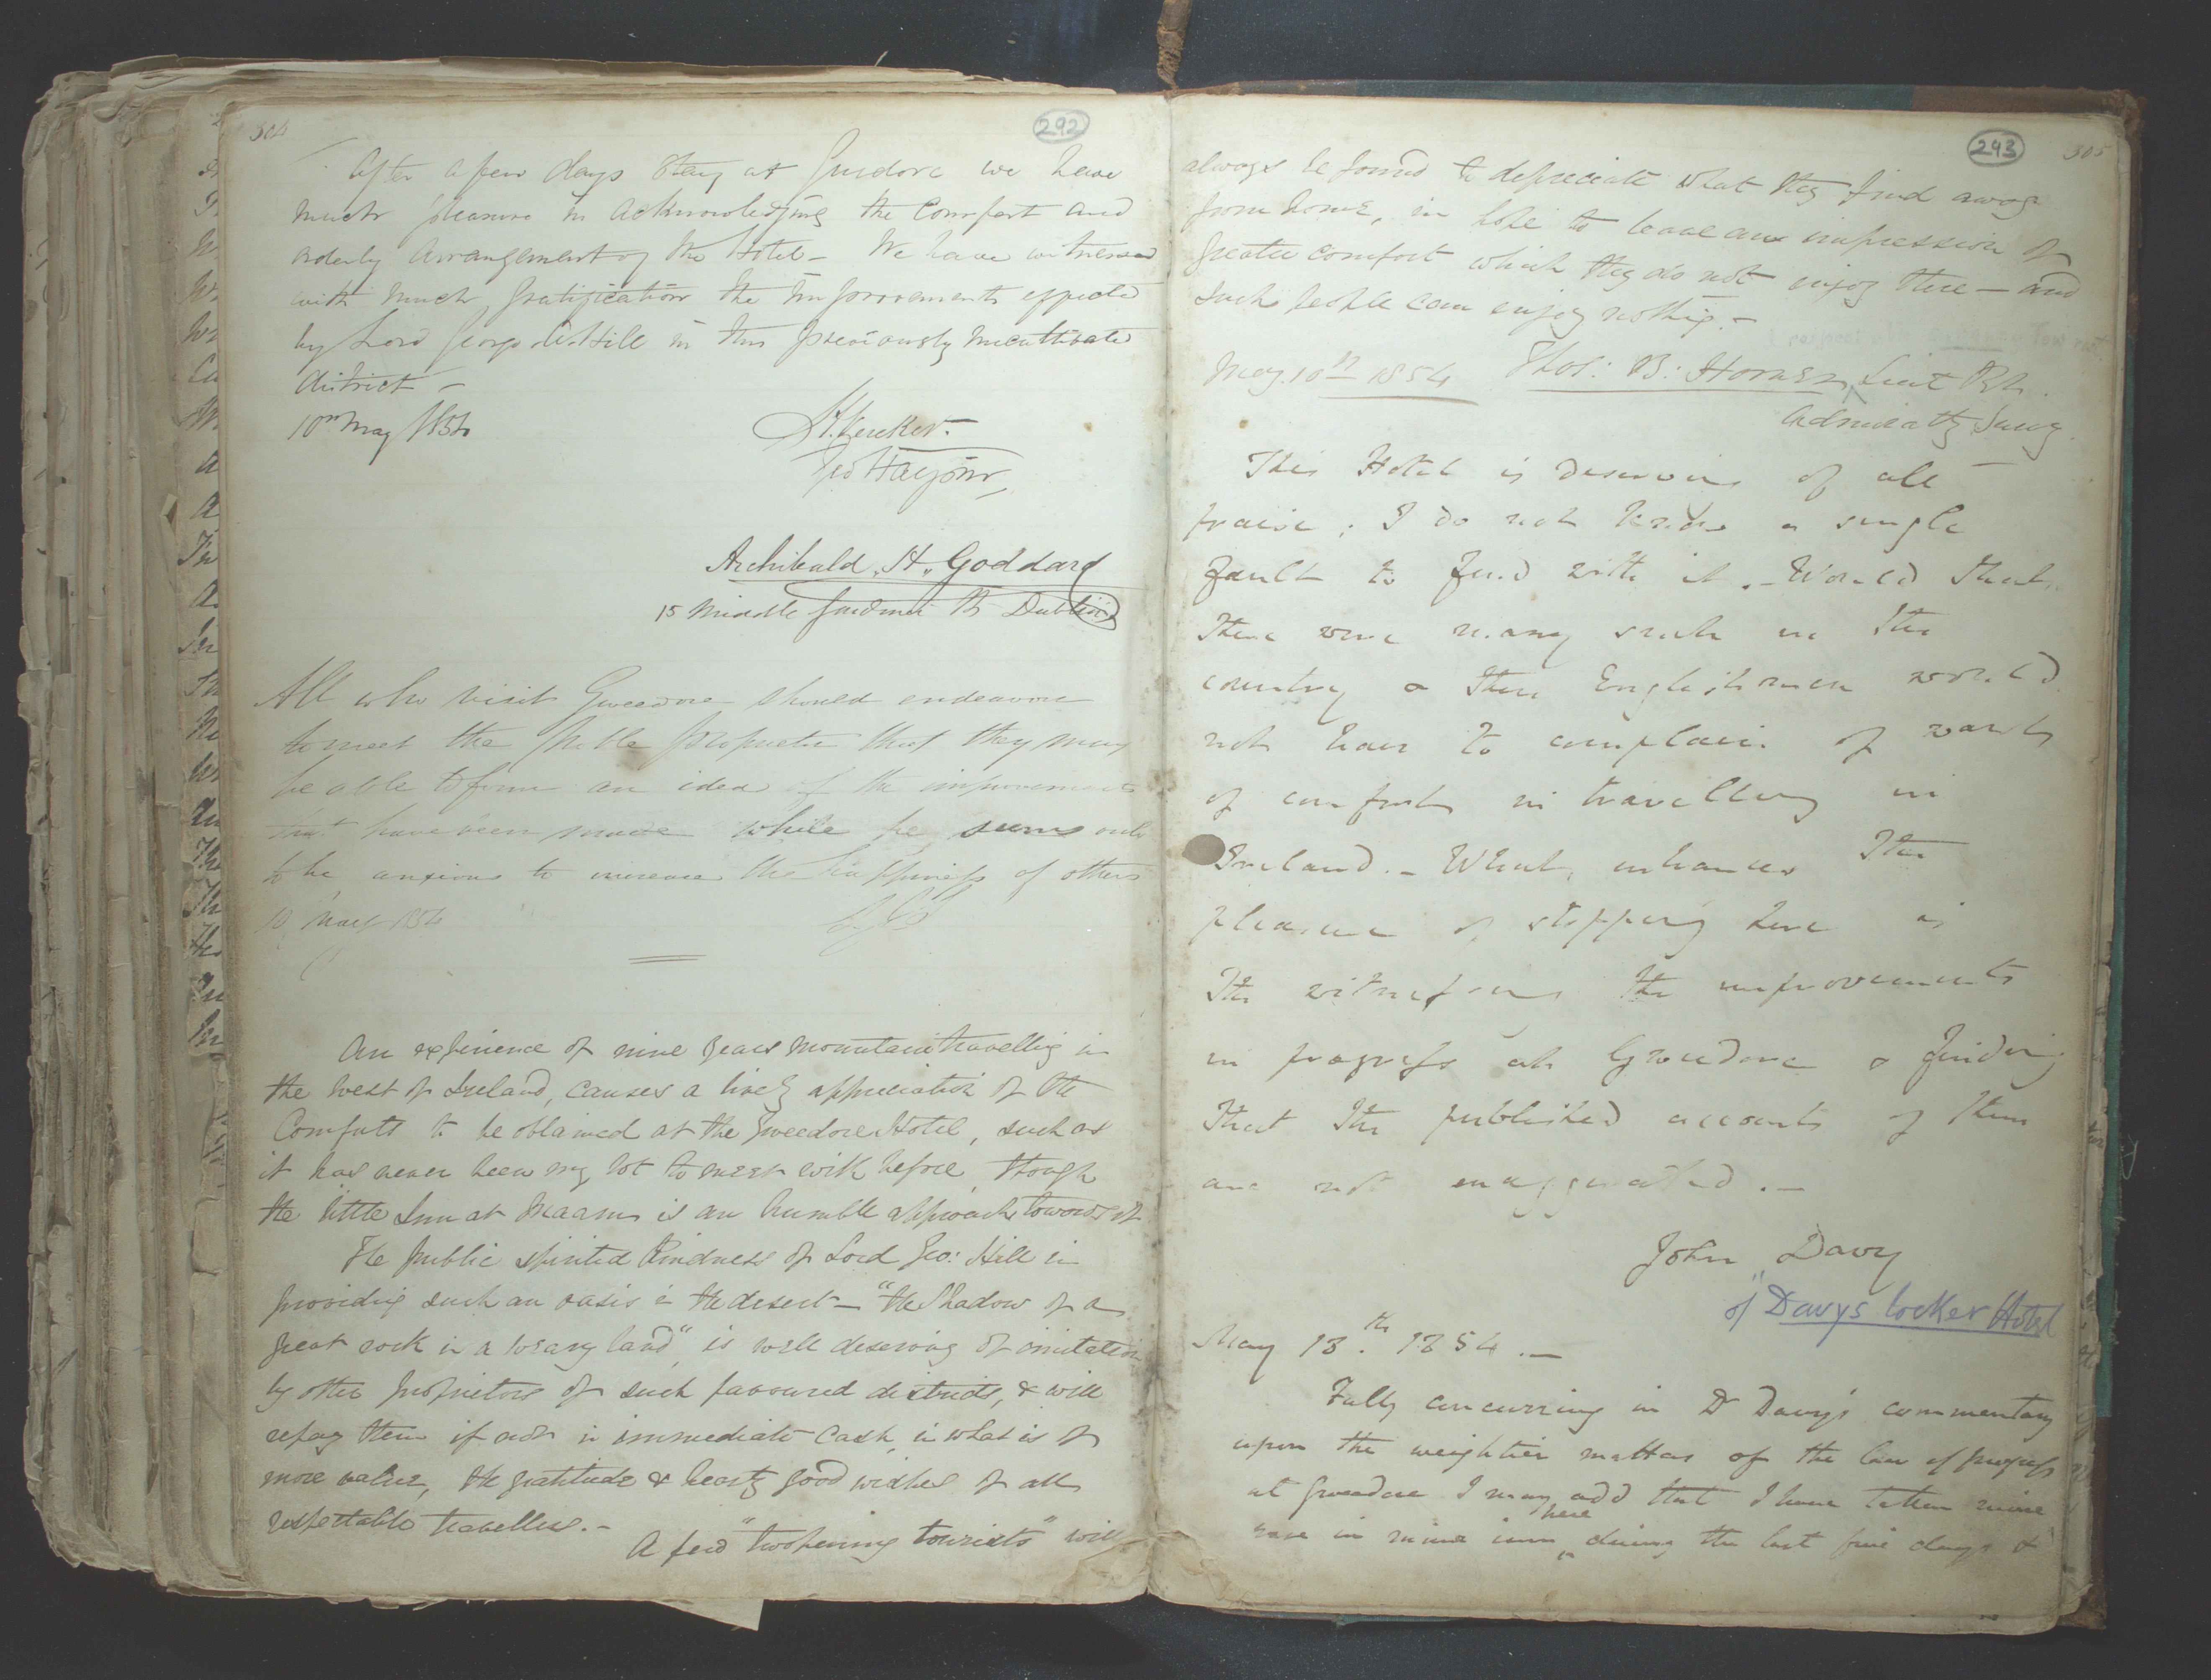 304
292
After a few days stay at Guedore we have
much pleasure in acknowledging the comfort and
orderly arrangement of the Hotel - We have witnessed
with much gratification the improvements effected
by Lord George A. Hill in this previously uncultivated
district -
10th May 1854
Archibald. H. Goddard
15 Middle Gardiner St Dublin
All who visit Gweedore should endeavour
to meet the Noble proprietor that they may
be able to form an idea of the improvements
that have been made while he seems only
to be anxious to increase the happiness of others
10 May 1854
An experience of nine years mountain travelling in
the west of Ireland, causes a lively appreciation of the
Comforts to be obtained at the Gweedore Hotel, such as
it has never been my lot to meet with before, though
the little Inn at Maam is an humble approach towards it
The public spirited kindness of Lord Geo: Hill in
providing such an oasis in the desert - "the Shadow of a
great rock in a weary land" is well deserving of imitation
by other proprietors of such favoured districts, & will
repay them if not in immediate cash, in what is of
more value, the gratitude & hearty good wishes of all
respectable travellers. -
A few "twopenny tourists" will
293
305
always be found to depreciate what they find away
from home, in hope to leave an impression of
greater comfort which they do not enjoy there - and
such people can enjoy nothing. -
May 10th 1854 Thos: B: Horner, Lieut RN.
Admiralty Survey.
This Hotel is deserving of all
praise; I do not know a single
fault to find with it. - Would that
there were many such in the
country & then Englishmen would
not have to complain of want
of comforts in travelling in
Ireland. - What enhances the
pleasure of stopping here is
the witnessing the improvements
in progress at Gweedore & finding
that the published accounts of them
are not exaggerated. -
John Davy
of "Davys locker Hotel
May 13th. 1854. -
Fully concurring in Dr Davy's commentary
upon the weightier matters of the law of progress
at Gweedore I may add that I have taken mine
ease in mine inn here during the last five days &